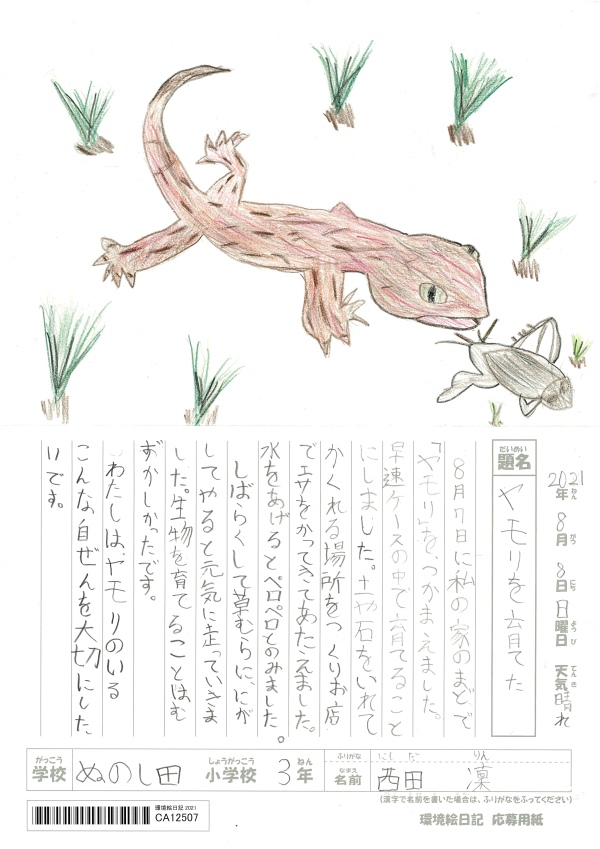 2021年 8月 8日 日曜日 天気 晴れ
ねん がつ にち ようび てんき
だいめい
題名
ヤモリを育てた
8月7日に私の家のまどで
「ヤモリ」を、つかまえました。
早速ケースの中で育てること
にしました。土や石をいれて
かくれる場所をつくりお店
でエサをかってきてあたえました。
水をあげるとペロペロとのみました。
しばらくして草むらに、にが
してやると元気に走っていきま
した。生物を育てることはむ
ずかしかったです。
わたしは、ヤモリのいる
こんな自ぜんを大切にした
いです。
がっこう
学校
ぬのし田
しょうがっこう
小学校
3年
ねん
ふりがな
にしだ りん
なまえ
名前
西田 凜
(漢字で名前を書いた場合は、ふりがなをふってください)
環境絵日記2021
CA12507
環境絵日記 応募用紙